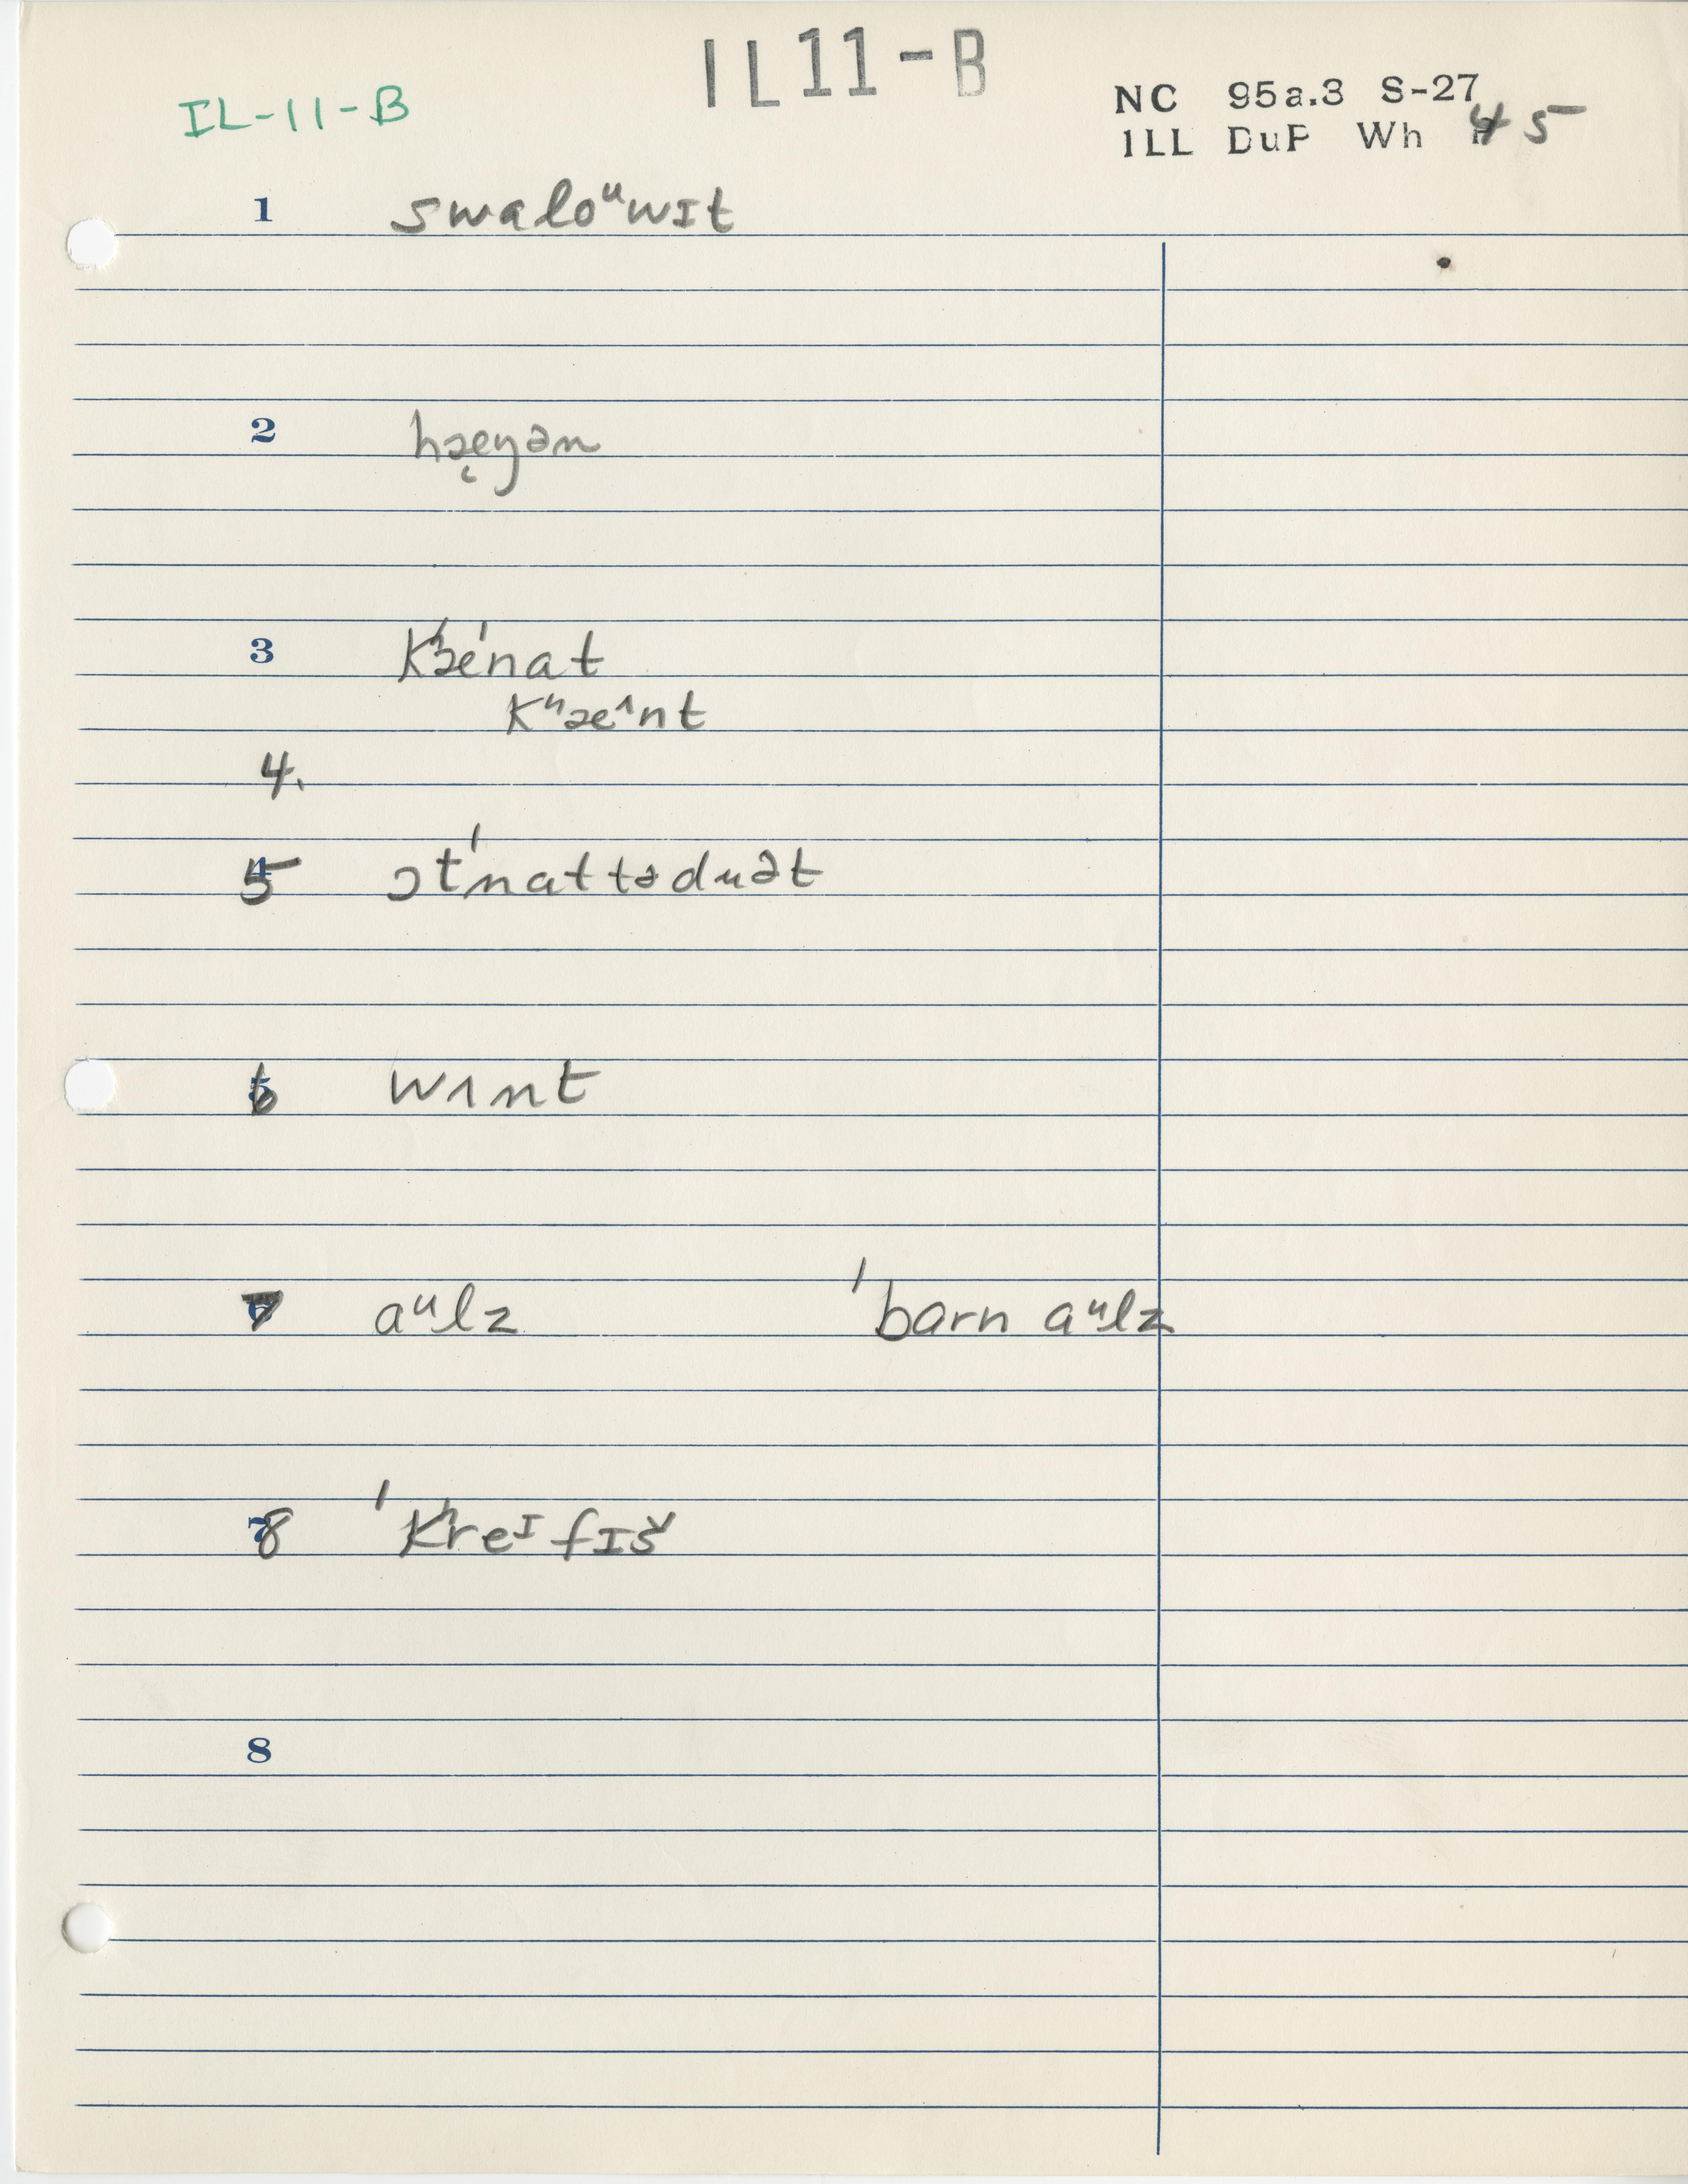 IL11-B
IL-11-B
NC 95a.3 S-27
ILL DuP Wh 45
1 swaloᵘwɪt
2 hæ̨yən
3 kʰæˈnat
kʰæᶦnt
4.
5 ɔtˈnattəduət
6 wɪnt
7 aᵘlz ˈbarn aᵘlz
8 ˈkʰreᶦfɪš
8